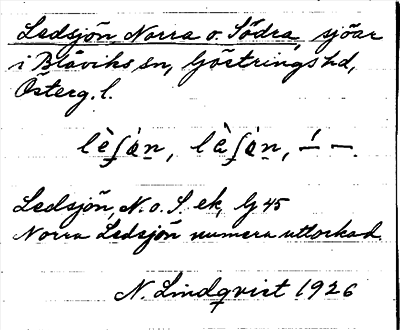 Ledsjön, Norra o. Södra, sjöar
i Blåviks sn, Göstrings hd,
Österg. l.
Ledsjön, N. o. S. ek, G 45
Norra Ledsjön numera uttorkad.
N. Lindqvist 1926